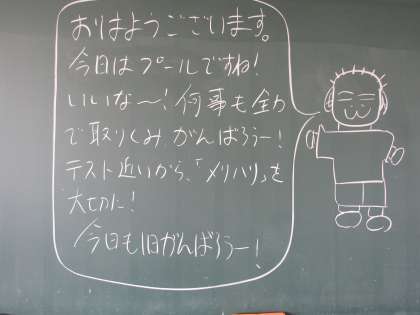 おはようございます。
今日はプールですね!
いいな〜!何事も全力
で取りくみ、がんばろうー!
テスト近いから、「メリハリ」を
大切に!
今日も1日がんばろうー!